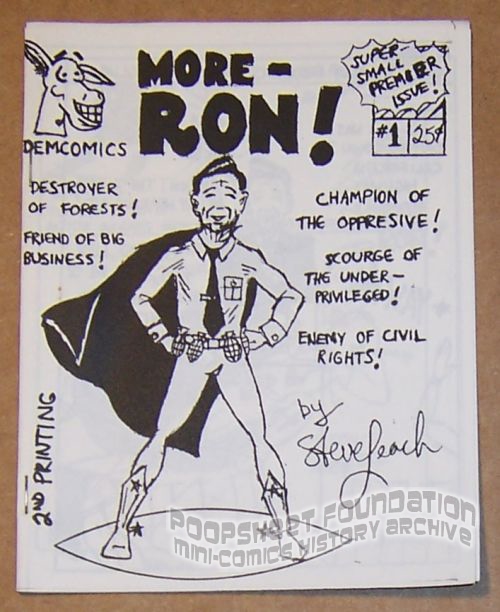 MORE-
RON!
SUPER-
SMALL
PREMIER
ISSUE!
#1 25¢
DEMCOMICS
DESTROYER
OF FORESTS!
FRIEND OF BIG
BUSINESS!
CHAMPION OF
THE OPPRESIVE!
SCOURGE OF
THE UNDER-
PRIVILEGED!
ENEMY OF CIVIL
RIGHTS!
by
Steve Leach
2ND PRINTING
POOPSHEET FOUNDATION
MINI-COMICS HISTORY ARCHIVE